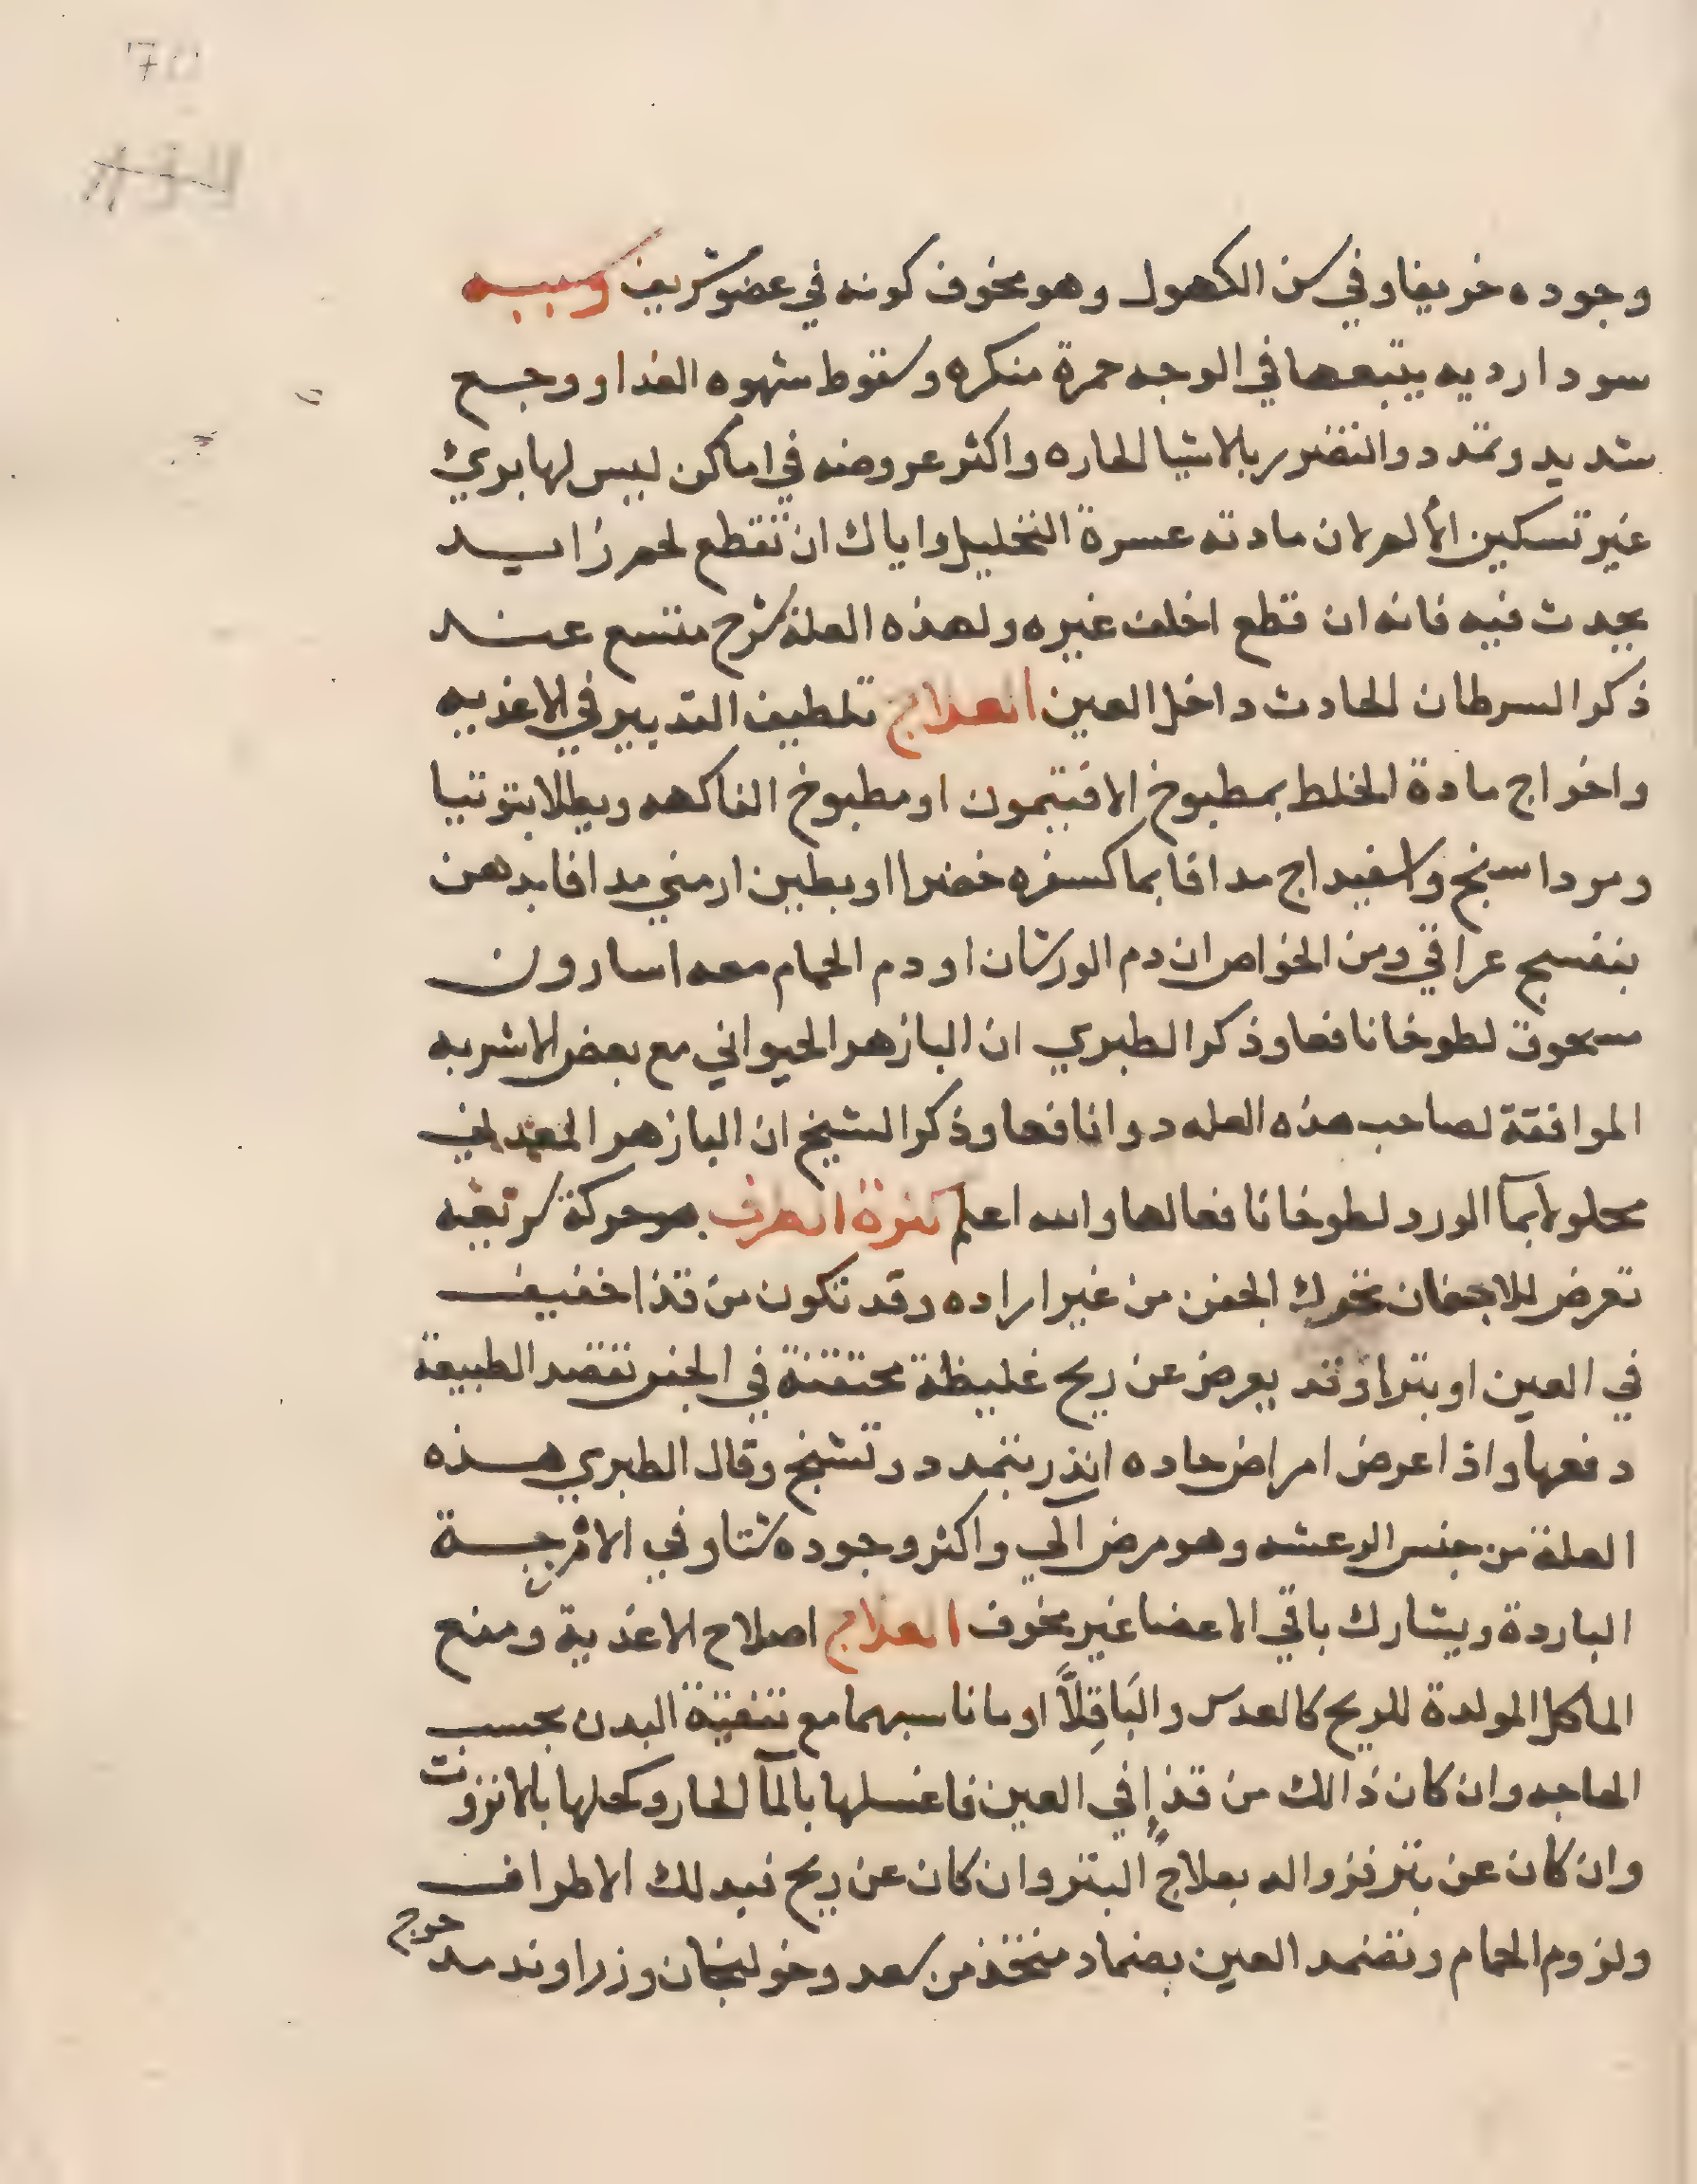 وجوده خريفا وفي سن الكهول وهو مخوف كونه في عضو شريف وسببه
سودا رديه يتبعها في الوجه حمرة منكره وسقوط شهوه الغدا ووجع
شديد وتمدد والتضرر بالاشيا الحاره واكثر عروضه في اماكن ليس لها بري
غير تسكين الألم لان مادته عسرة التحليل واياك ان تقطع لحم زايد
يحدث فيه فانه ان قطع اخلف غيره ولهذه العلة شرح متسع عند
ذكر السرطان الحادث داخل العين العلاج تلطيف التدبير في الاغديه
واخراج مادة الخلط بمطبوخ الافتيمون او مطبوخ الفاكهه ويطلا بتوتيا
ومرداسنج واسفيداج مدافا بما كسفره خضرا او بطين ارمني مدافا بدهن
بنفسج عراقي ومن الخواص ان دم الورشان او دم الحمام معه اسارون
مسحوق لطوخا نافعا وذكر الطبري ان البازهر الحيواني مع بعض الاشربه
الموافقة لصاحب هذه العله دوا نافعا وذكر الشيخ ان البازهر المعدني
محلولا بمآ الورد لطوخا نافعا لها والله اعلم كثرة الطرف هو حركة سريعه
تعرض للاجفان بتحرك الجفن من غير اراده وقد تكون من قذا خفيف
في العين او بثرا وقد يعرض عن ريح غليظة محتقنة في الجفن تقصد الطبيعة
دفعها واذا عرض امراض حاده انذر بتمدد وتشنج وقال الطبري هذه
العلة من جنس الرعشه وهو مرض آلي واكثر وجوده شتا وفي الامزجة
الباردة ويشارك باقي الاعضا غير مخوف العلاج اصلاح الاغذية ومنع
الماكل المولدة للريح كالعدس والبَاقِلَّا او ما ناسبهما مع تنقية البدن بحسب
الحاجه وان كان ذالك من قذا في العين فاغسلها بالمآ الحار وكحلها بالانزروت
وان كان عن بثر فزواله بعلاج البثر وان كان عن ريح فبدلك الاطراف
ولزوم الحمام وتضمد العين بضماد متخذ من سعد وخولنجان وزراوند مدحرج